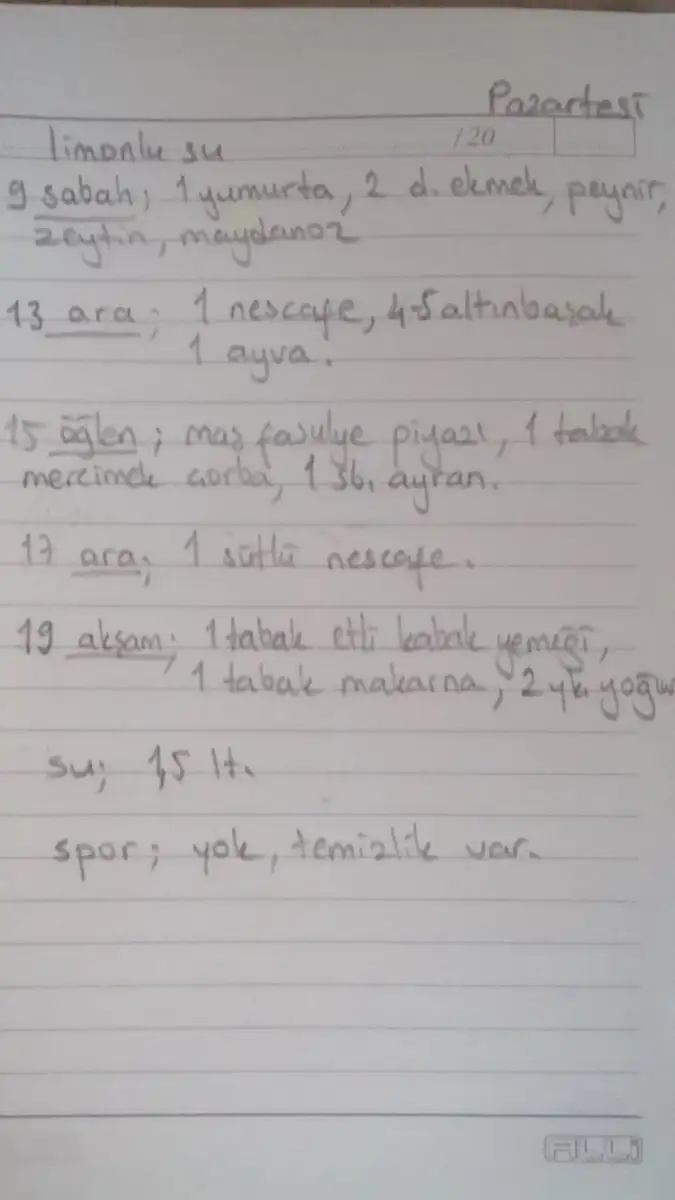 Pazartesi
/20
limonlu su
9 sabah; 1 yumurta, 2 d. ekmek, peynir,
zeytin, maydanoz
13 ara; 1 nescafe, 4-5 altınbaşak
1 ayva.
15 öğlen; maş fasulye piyazı, 1 tabak
mercimek çorba, 1 sb. ayran.
17 ara; 1 sütlü nescafe.
19 akşam; 1 tabak etli kabak yemeği,
1 tabak makarna, 2 yk. yoğu
su; 1,5 lt.
spor; yok, temizlik var.
ALLi